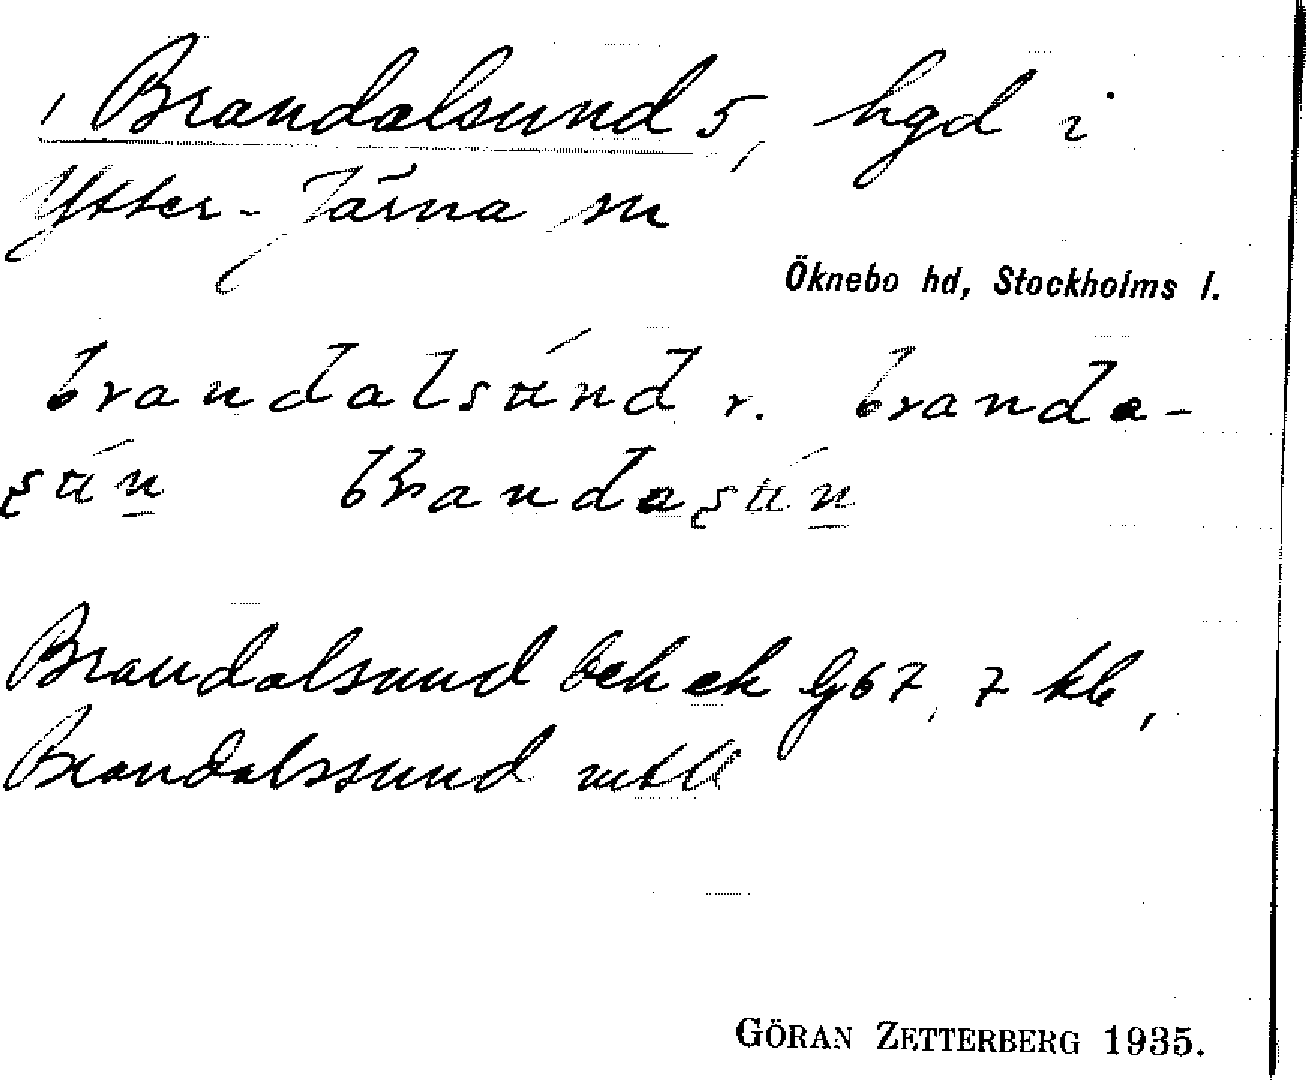 Brandalsund 5, hgd i
Ytter-Järna sn
Öknebo hd, Stockholms l.
brandalsund r. branda-
sun Brandasun
Brandalsund beh ek G67, 7 kb,
Brandalssund mtlk
GÖRAN ZETTERBERG 1935.